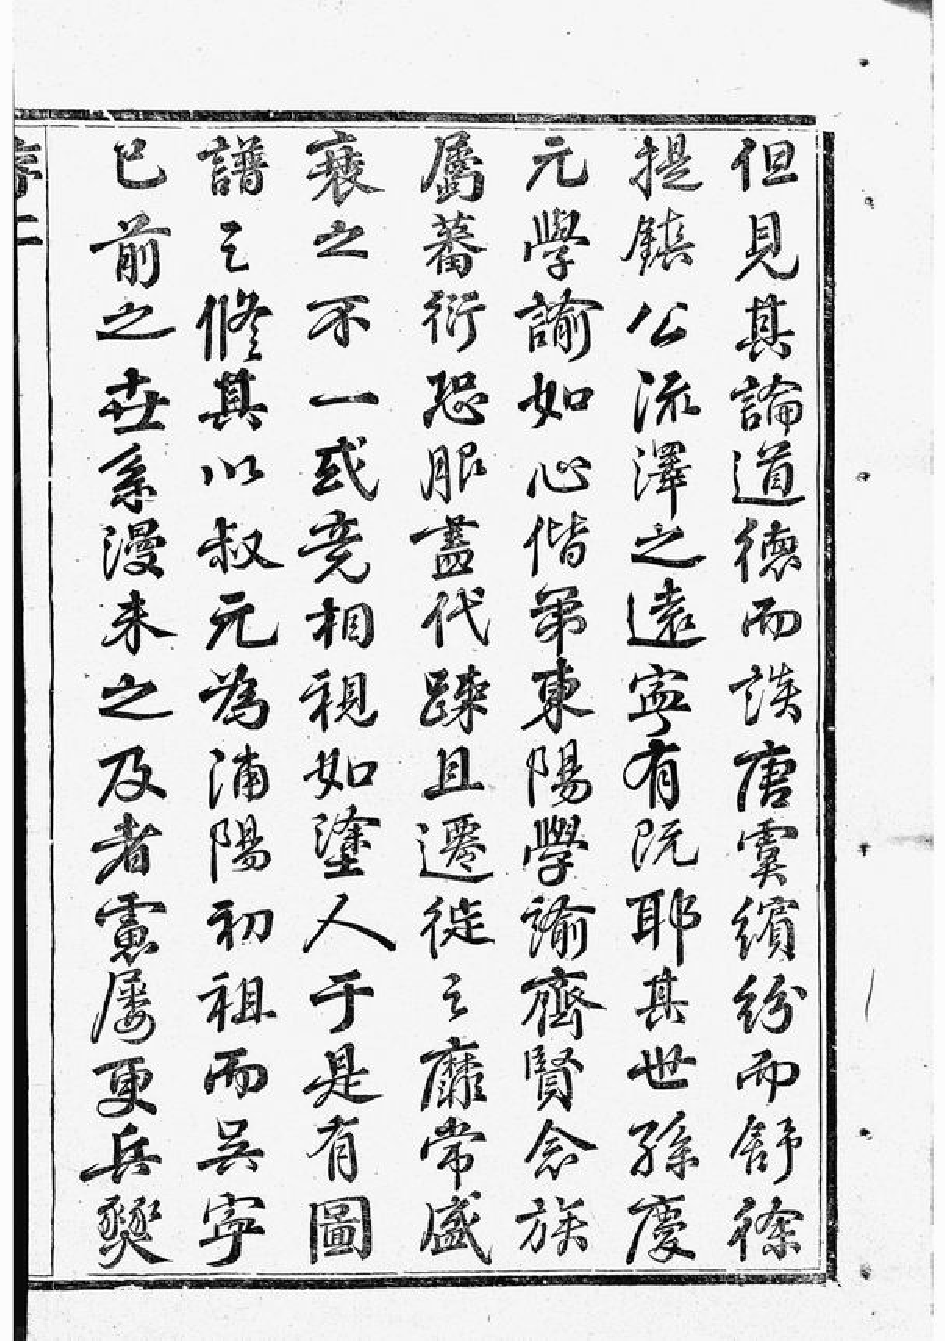 但見其論道德而談唐虞繽紛而舒徐
提鎮公流澤之遠寧有既耶其世孫慶
元學諭如心偕弟東陽學諭齊賢念族
屬蕃衍恐服盡代踈且遷徙之靡常盛
衰之不一或竟相視如塗人于是有圖
譜之修其以叔元為浦陽初祖而吳寧
已前之世系漫未之及者慮屡更兵燹
序二